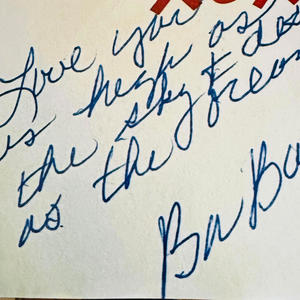 Love you
as high as
the sky & dee
as the ocean
Ba Ba